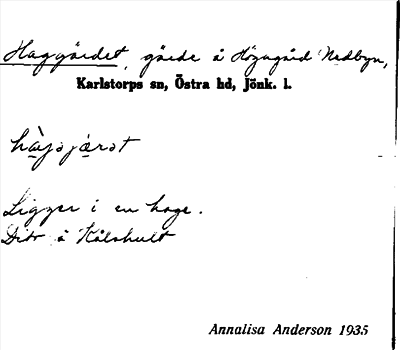 Haggärdet, gärde å Högagärd Nedbyn,
Karlstorps sn, Östra hd, Jönk. l.
Ligger i en hage.
Dito å Kålshult
Annalisa Anderson 1935